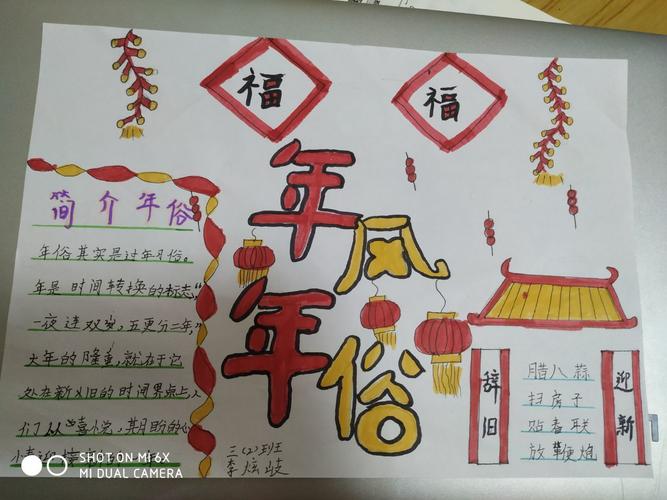 福
福
年风
年俗
简介年俗
年俗其实是过年习俗。
年是时间转换的标志,“
一夜连双岁,五更分二年,”
大年的隆重,就在于它
处在新义旧的时间界点上,人
们从
三(2)班
李炫歧
腊八蒜
扫房子
贴春联
放鞭炮
辞旧
迎新
SHOT ON MI 6X
MI DUAL CAMERA